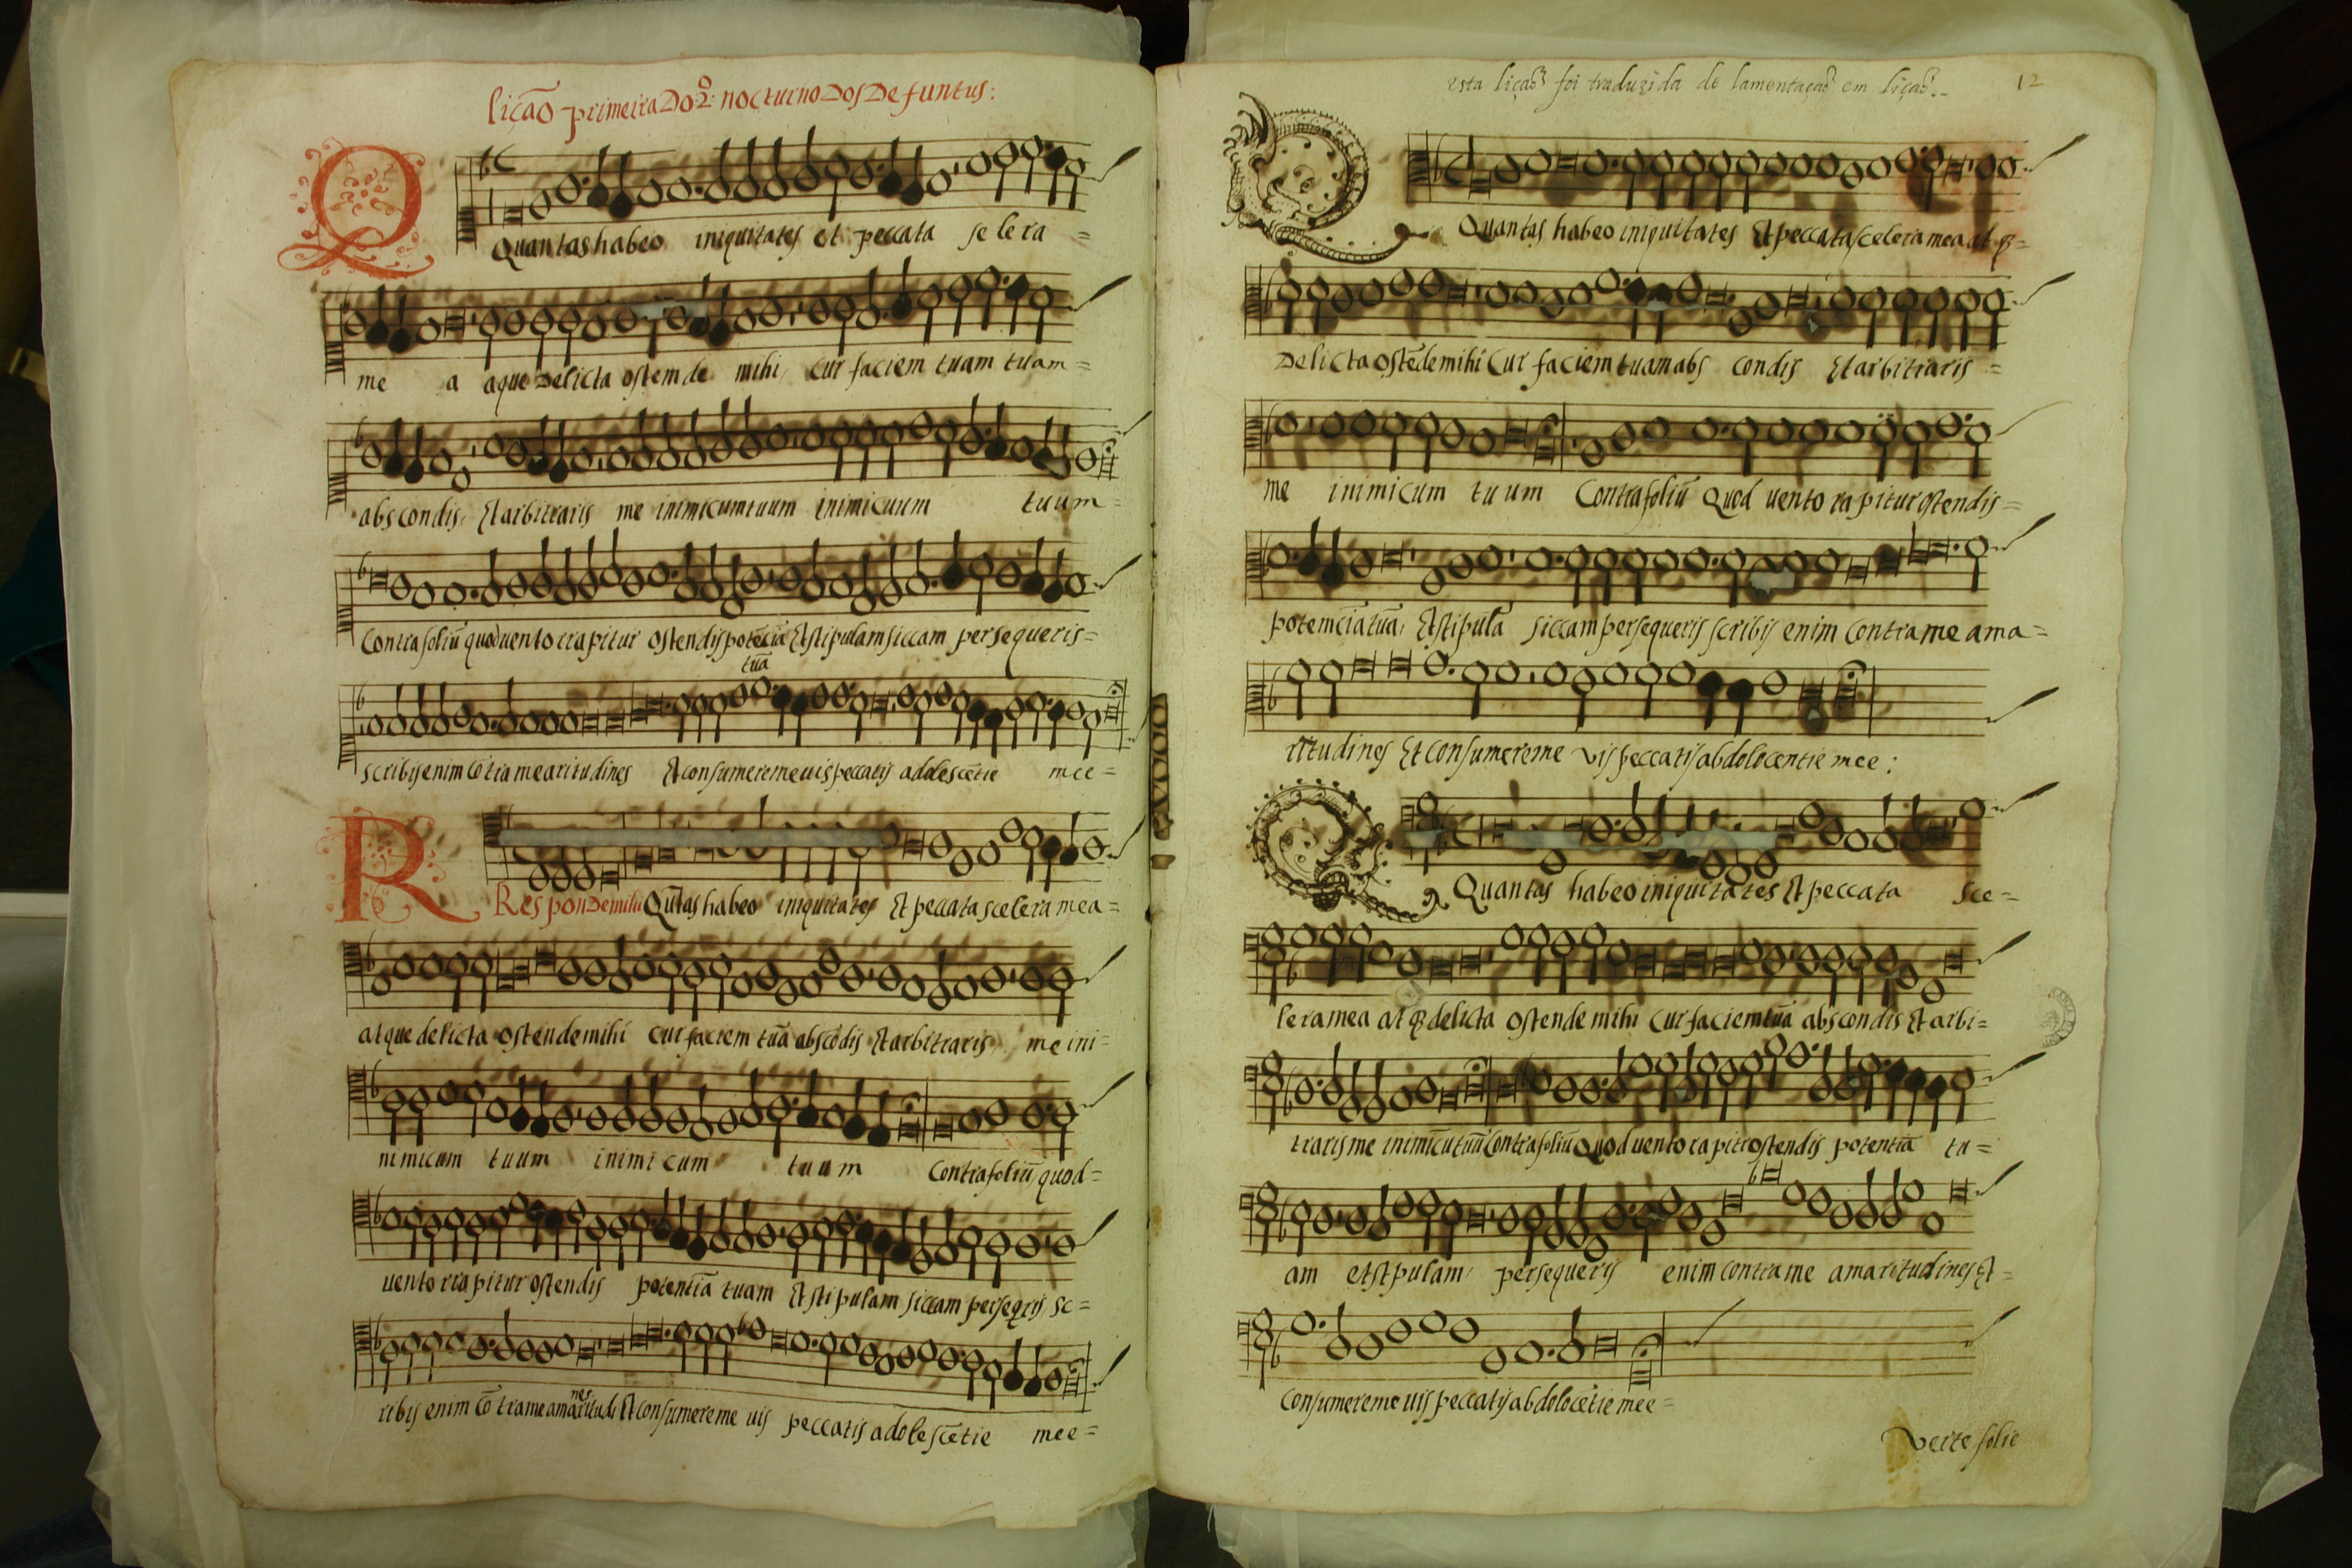 lição primeira Do 2º nocturno Dos Defuntus:
Quantas habeo iniquitates et peccata scelera =
me a aque Delicta ostemde mihi, cur faciem tuam tuam =
abscondis, Et arbitraris me inimicumtuum inimicuum tuum =
Contra foliũ quod uento rrapitur ostendis potẽcia Et stipulam siccam persequeris =
tuã
scribis enim cõtra me aritudines Et consumere me uis peccatis adolescẽtie mee =
Responde mihi Quãtas habeo iniquitates Et peccata scelera mea =
atque delicta ostende mihi cur faciem tuã abscõdis Et arbitraris me ini =
nimicum tuum inimicum tuum Contra foliũ, quod =
uento rrapitur ostendis potentiã tuam Et stipulam siccam perseqris sc =
ribis enim cõ tra me amaritudi Et consumere me uis peccatis adolescẽtie mee =
nes
esta lição foi traduzida de lamentação em lição. 12
Quantas habeo iniquitates Et peccata scelera mea at q =
Delicta ostẽde mihi Cur faciem tuam abs condis Et arbitraris =
me inimicum tuum Contra foliũ Quod uento rapitur ostendis =
potemciã tuã, Et stipulã siccam persequeris scribis enim contra me ama =
ritudines Et consumere me vis peccatis abdolocentie mee :
Quantas habeo iniquitates Et peccata sce =
lera mea at q delicta ostende mihi cur faciem tuã abscondis Et arbi =
traris me inimicũ tuũ Contra foliũ Quod uento rapitr ostendis potentiã tu =
am etstpulam, persequeris enim contra me amaritudines Et =
Consumere me uis peccatis abdolocẽtie mee =
Verte folio